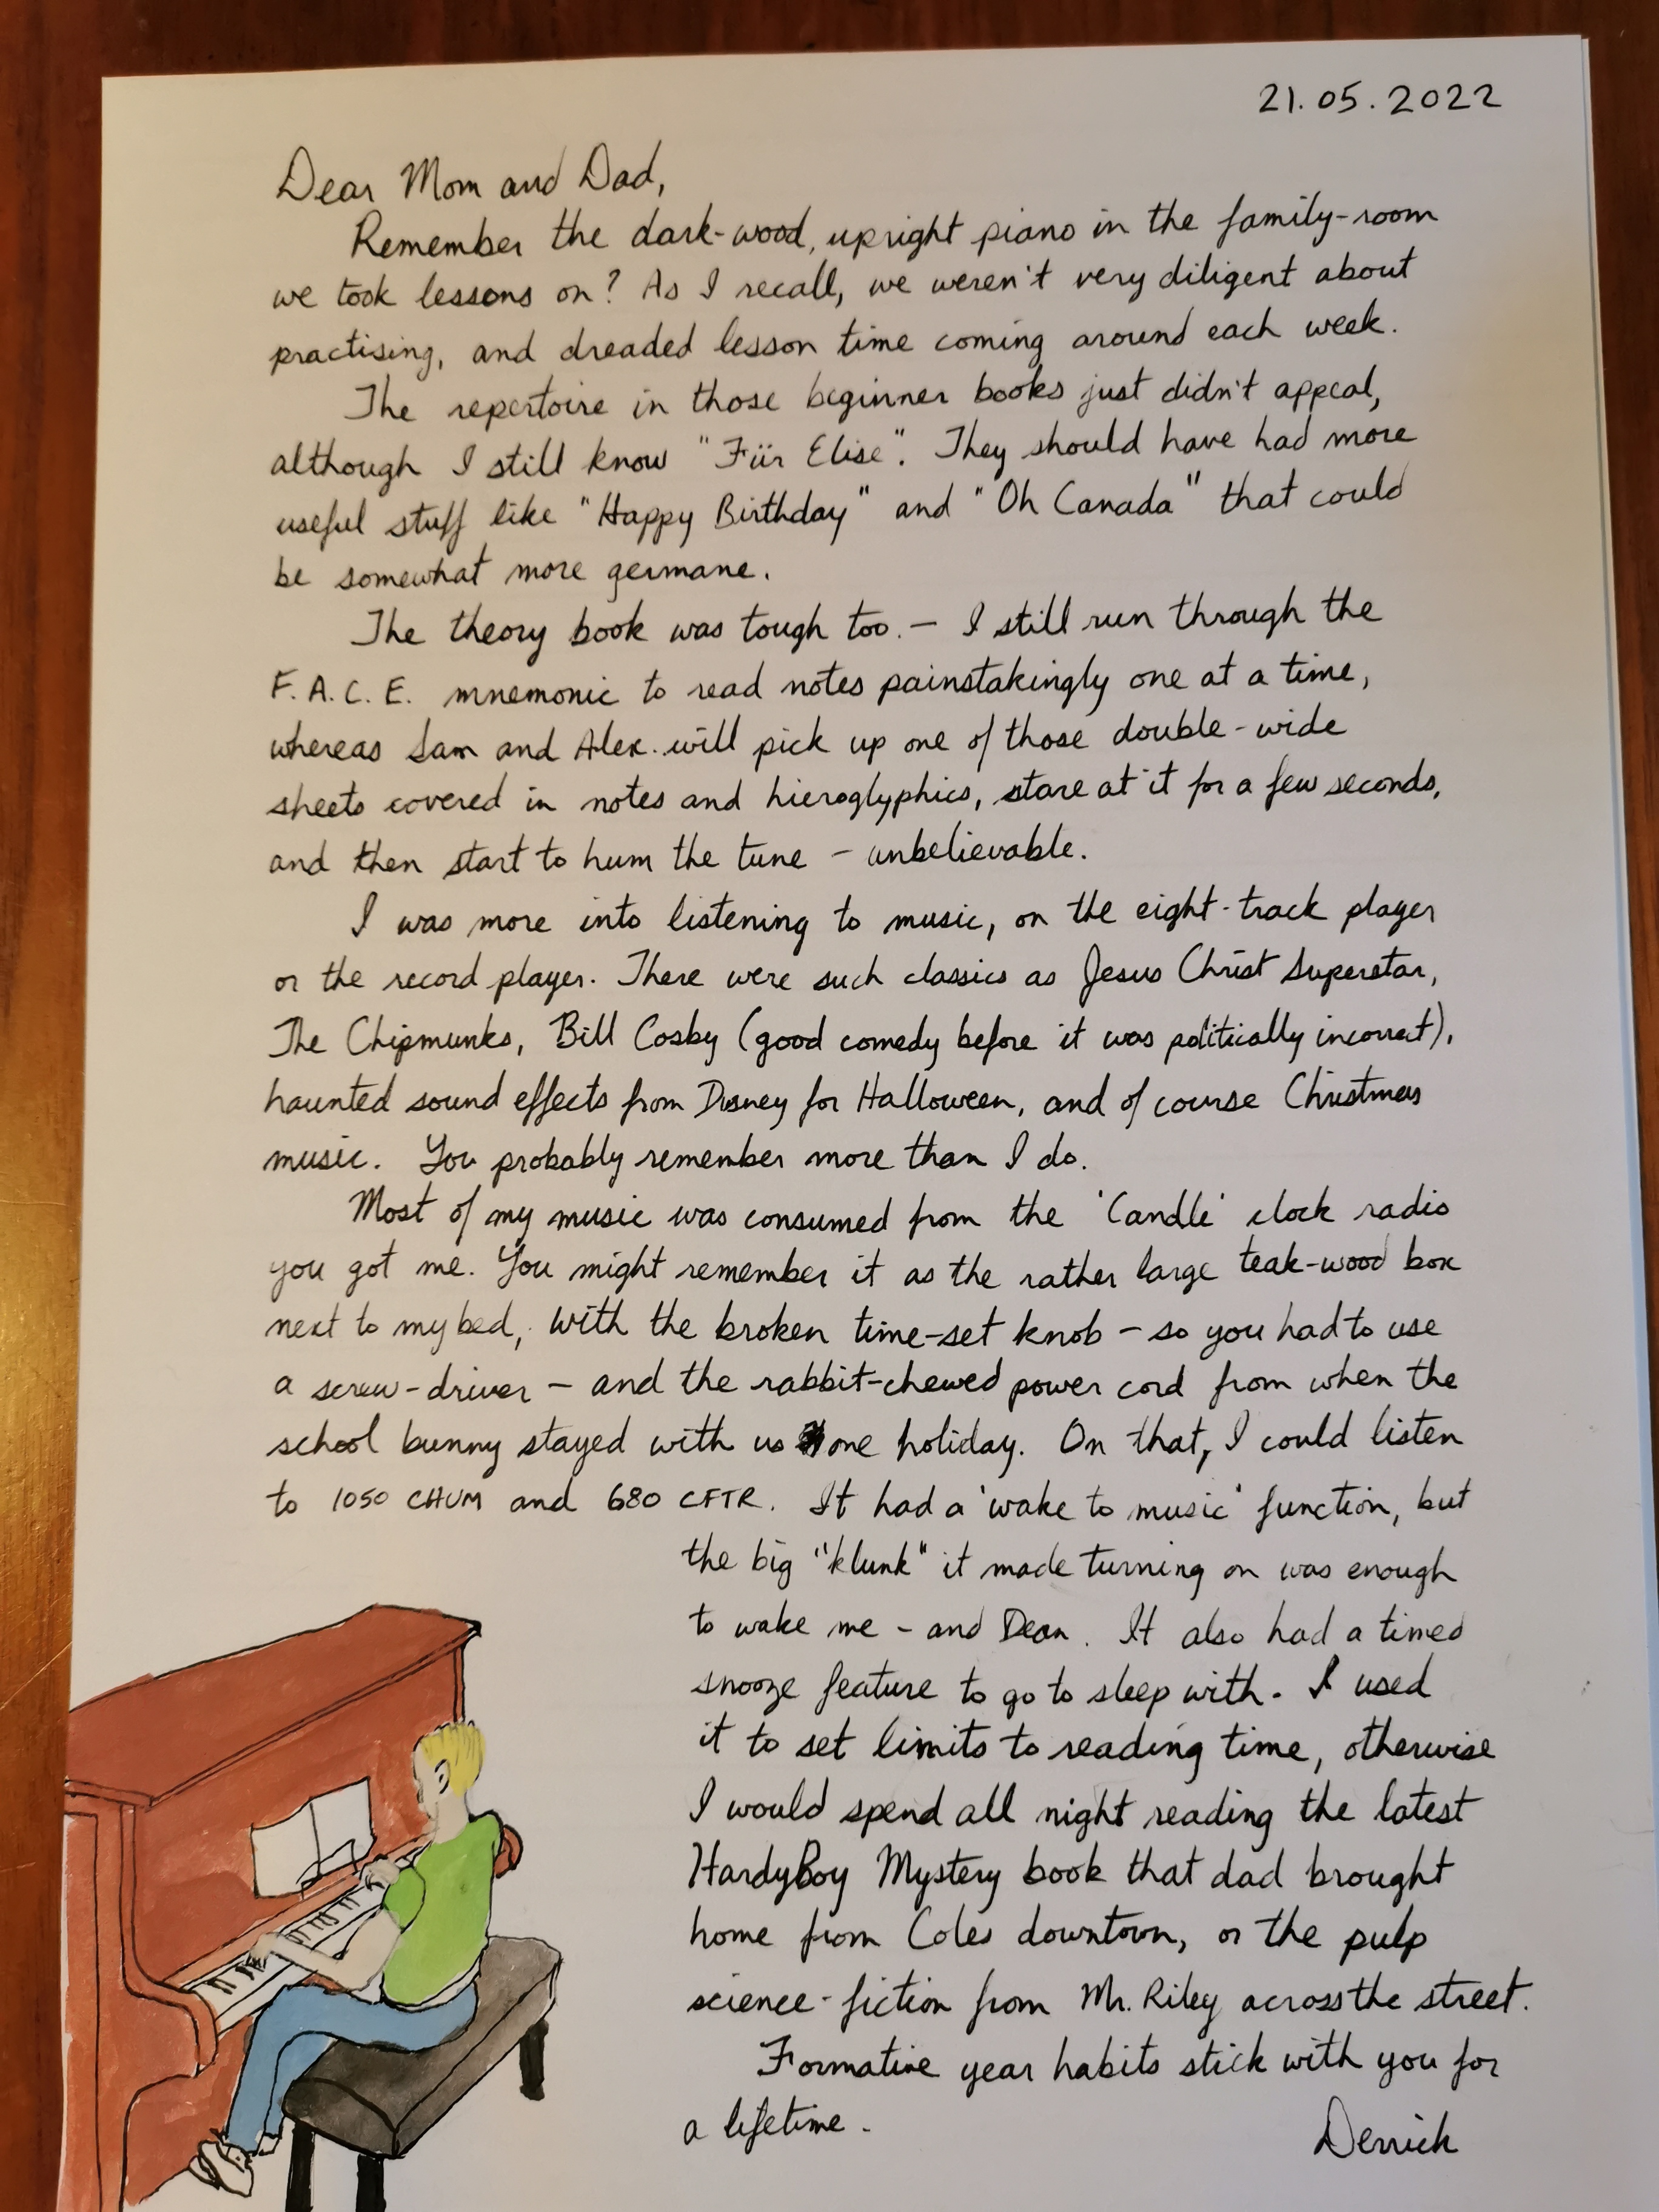 21.05.2022
Dear Mom and Dad,
Remember the dark-wood, upright piano in the family-room
we took lessons on? As I recall, we weren't very diligent about
practising, and dreaded lesson time coming around each week.
The repertoire in those beginner books just didn't appeal,
although I still know "Für Elise". They should have had more
useful stuff like "Happy Birthday" and "Oh Canada" that could
be somewhat more germane.
The theory book was tough too. – I still run through the
F.A.C.E. mnemonic to read notes painstakingly one at a time,
whereas Sam and Alex will pick up one of those double-wide
sheets covered in notes and hieroglyphics, stare at it for a few seconds,
and then start to hum the tune – unbelievable.
I was more into listening to music, on the eight-track player
or the record player. There were such classics as Jesus Christ Superstar,
The Chipmunks, Bill Cosby (good comedy before it was politically incorrect),
haunted sound effects from Disney for Halloween, and of course Christmas
music. You probably remember more than I do.
Most of my music was consumed from the 'Candle' clock radio
you got me. You might remember it as the rather large teak-wood box
next to my bed, with the broken time-set knob – so you had to use
a screw-driver – and the rabbit-chewed power cord from when the
school bunny stayed with us one holiday. On that, I could listen
to 1050 CHUM and 680 CFTR. It had a 'wake to music' function, but
the big "klunk" it made turning on was enough
to wake me – and Dean. It also had a timed
snooze feature to go to sleep with. I used
it to set limits to reading time, otherwise
I would spend all night reading the latest
HardyBoy Mystery book that dad brought
home from Coles downtown, or the pulp
science-fiction from Mr. Riley across the street.
Formative year habits stick with you for
a lifetime.
Derrick